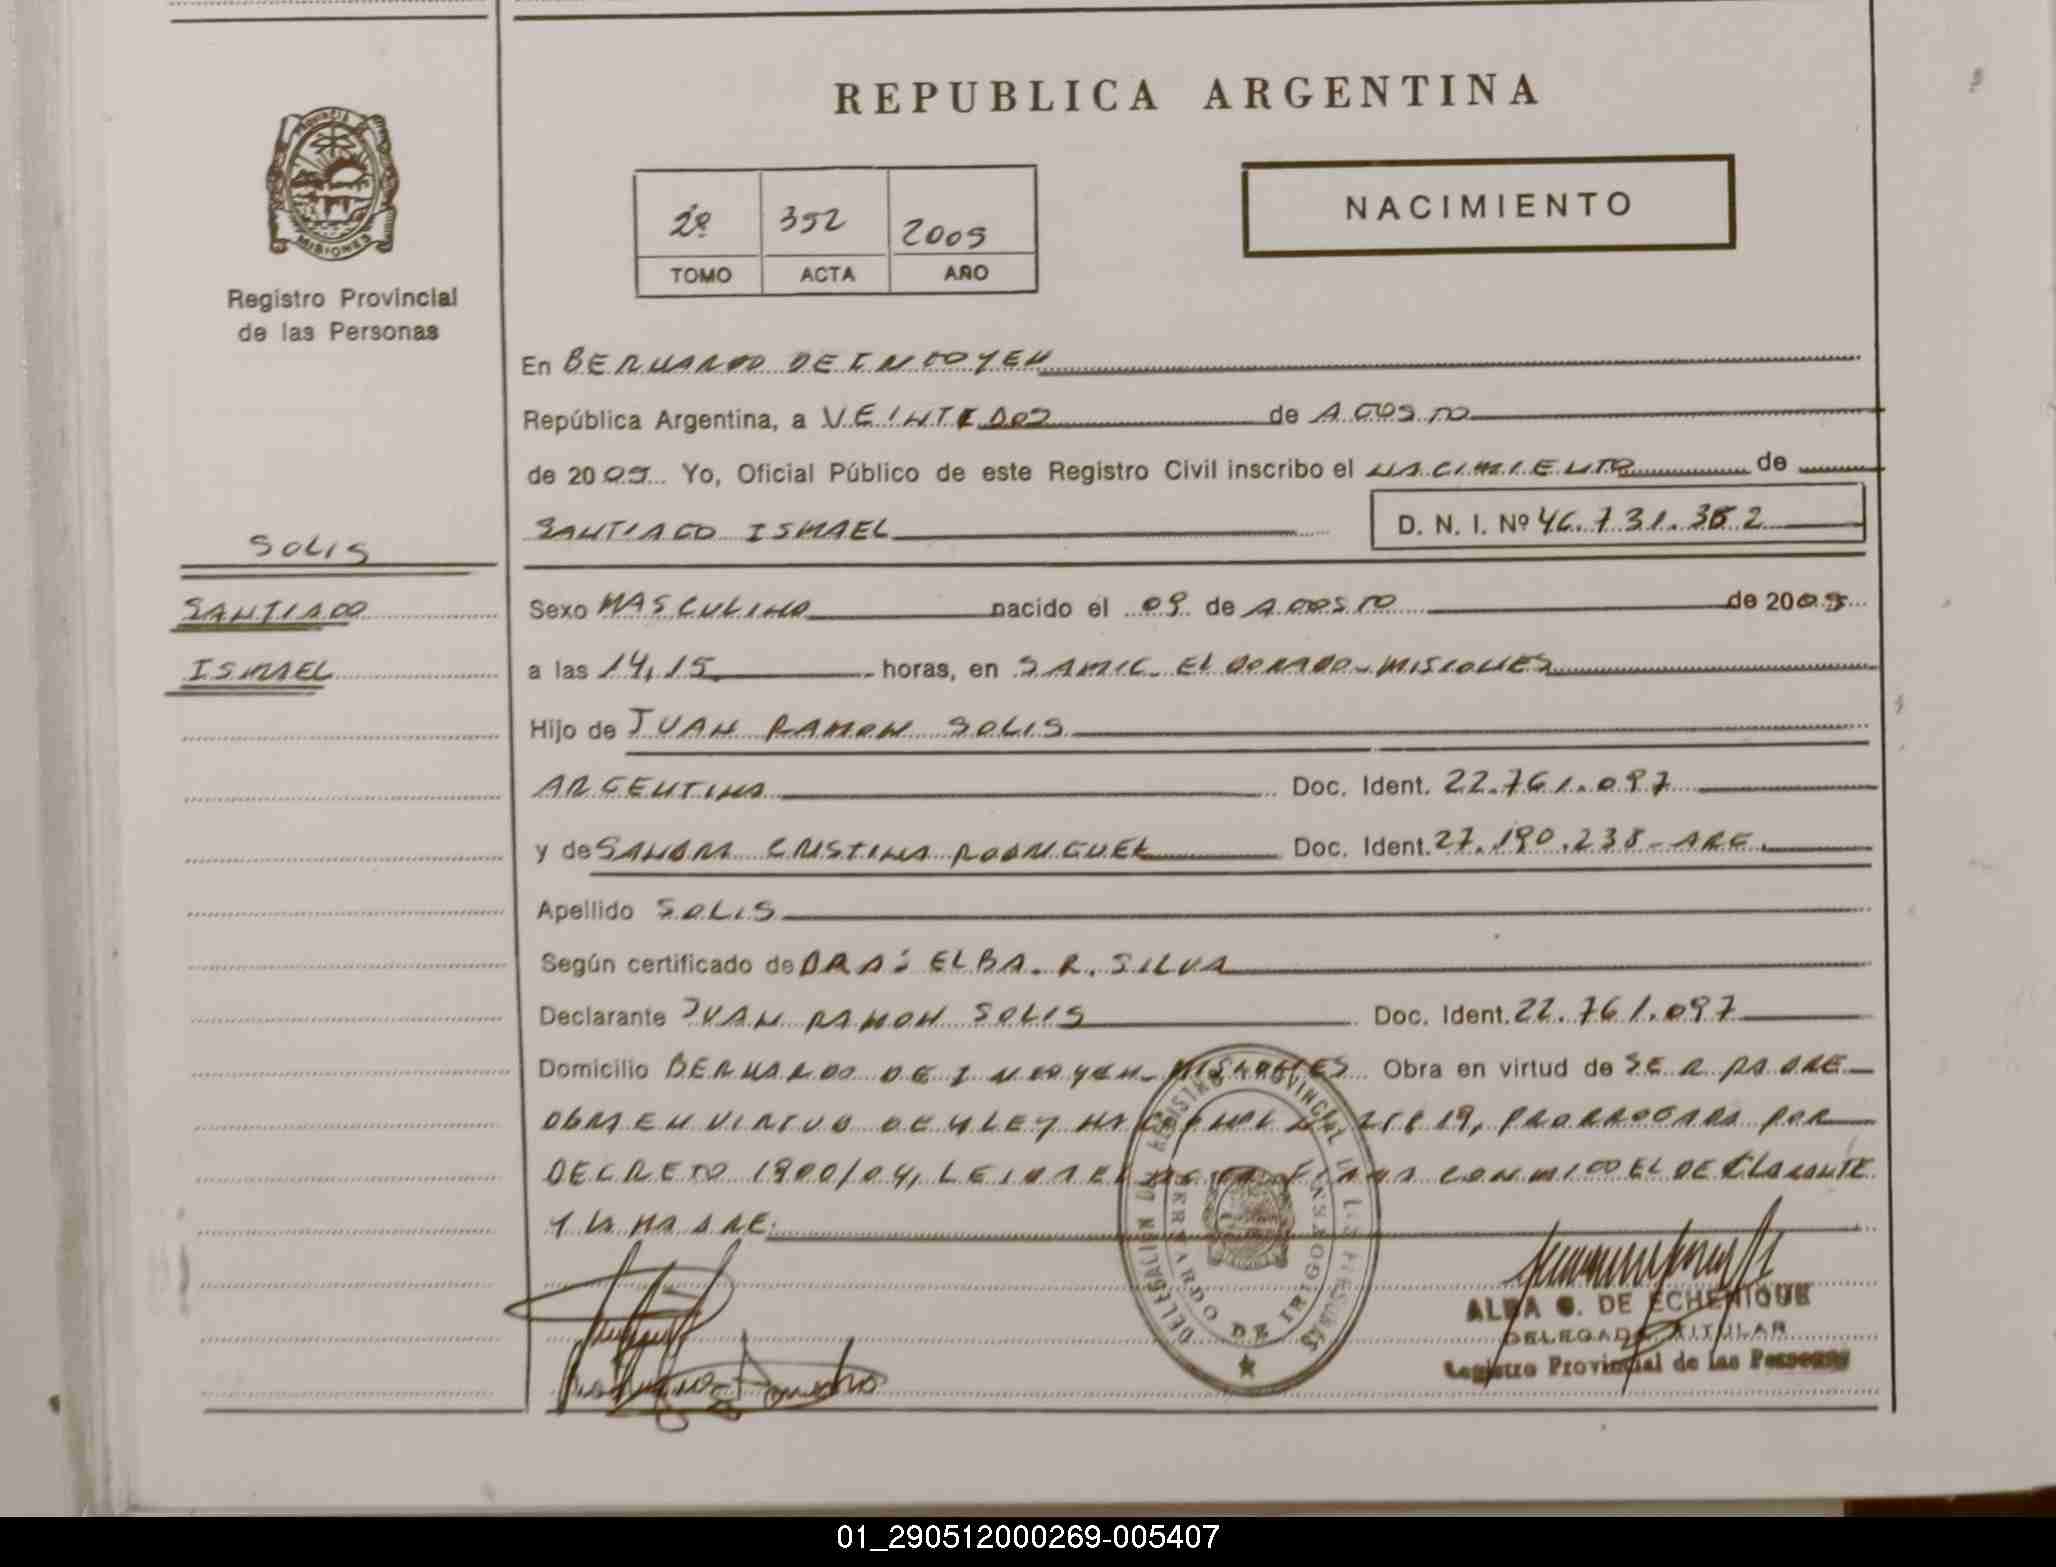 REPUBLICA ARGENTINA
PROVINCIA DE
MISIONES
Registro Provincial
de las Personas
2º 352 2005
TOMO ACTA AÑO
NACIMIENTO
En BERNARDO DE IRIGOYEN
República Argentina, a VEINTEDOS de AGOSTO
de 2005 Yo, Oficial Público de este Registro Civil inscribo el NACIMIENTO de
SANTIAGO ISMAEL D. N. I. Nº 46.731.352
SOLIS
SANTIAGO
ISMAEL
Sexo MASCULINO nacido el 09 de AGOSTO de 2005
a las 14,15 horas, en SAMIC- ELDORADO-MISIONES
Hijo de JUAN RAMON SOLIS
ARGENTINA Doc. Ident. 22.761.097
y de SANDRA CRISTINA RODRIGUEZ Doc. Ident. 27.190.238-ARG.
Apellido SOLIS
Según certificado de DRA: ELBA. R. SILVA
Declarante JUAN RAMON SOLIS Doc. Ident. 22.761.097
Domicilio BERNARDO DE IRIGOYEN-MISIONES Obra en virtud de SER PADRE
OBRA EN VIRTUD DE LEY NACIONAL PRORROGADA POR
DECRETO 1900/04, LEIDA EL ACTA FIRMA CONMIGO EL DECLARANTE
Y LA MADRE.
DELEGACION DEL REGISTRO PROVINCIAL DE LAS PERSONAS
BERNARDO DE IRIGOYEN
ALBA G. DE ECHENIQUE
DELEGADA TITULAR
Registro Provincial de las Personas
01_290512000269-005407